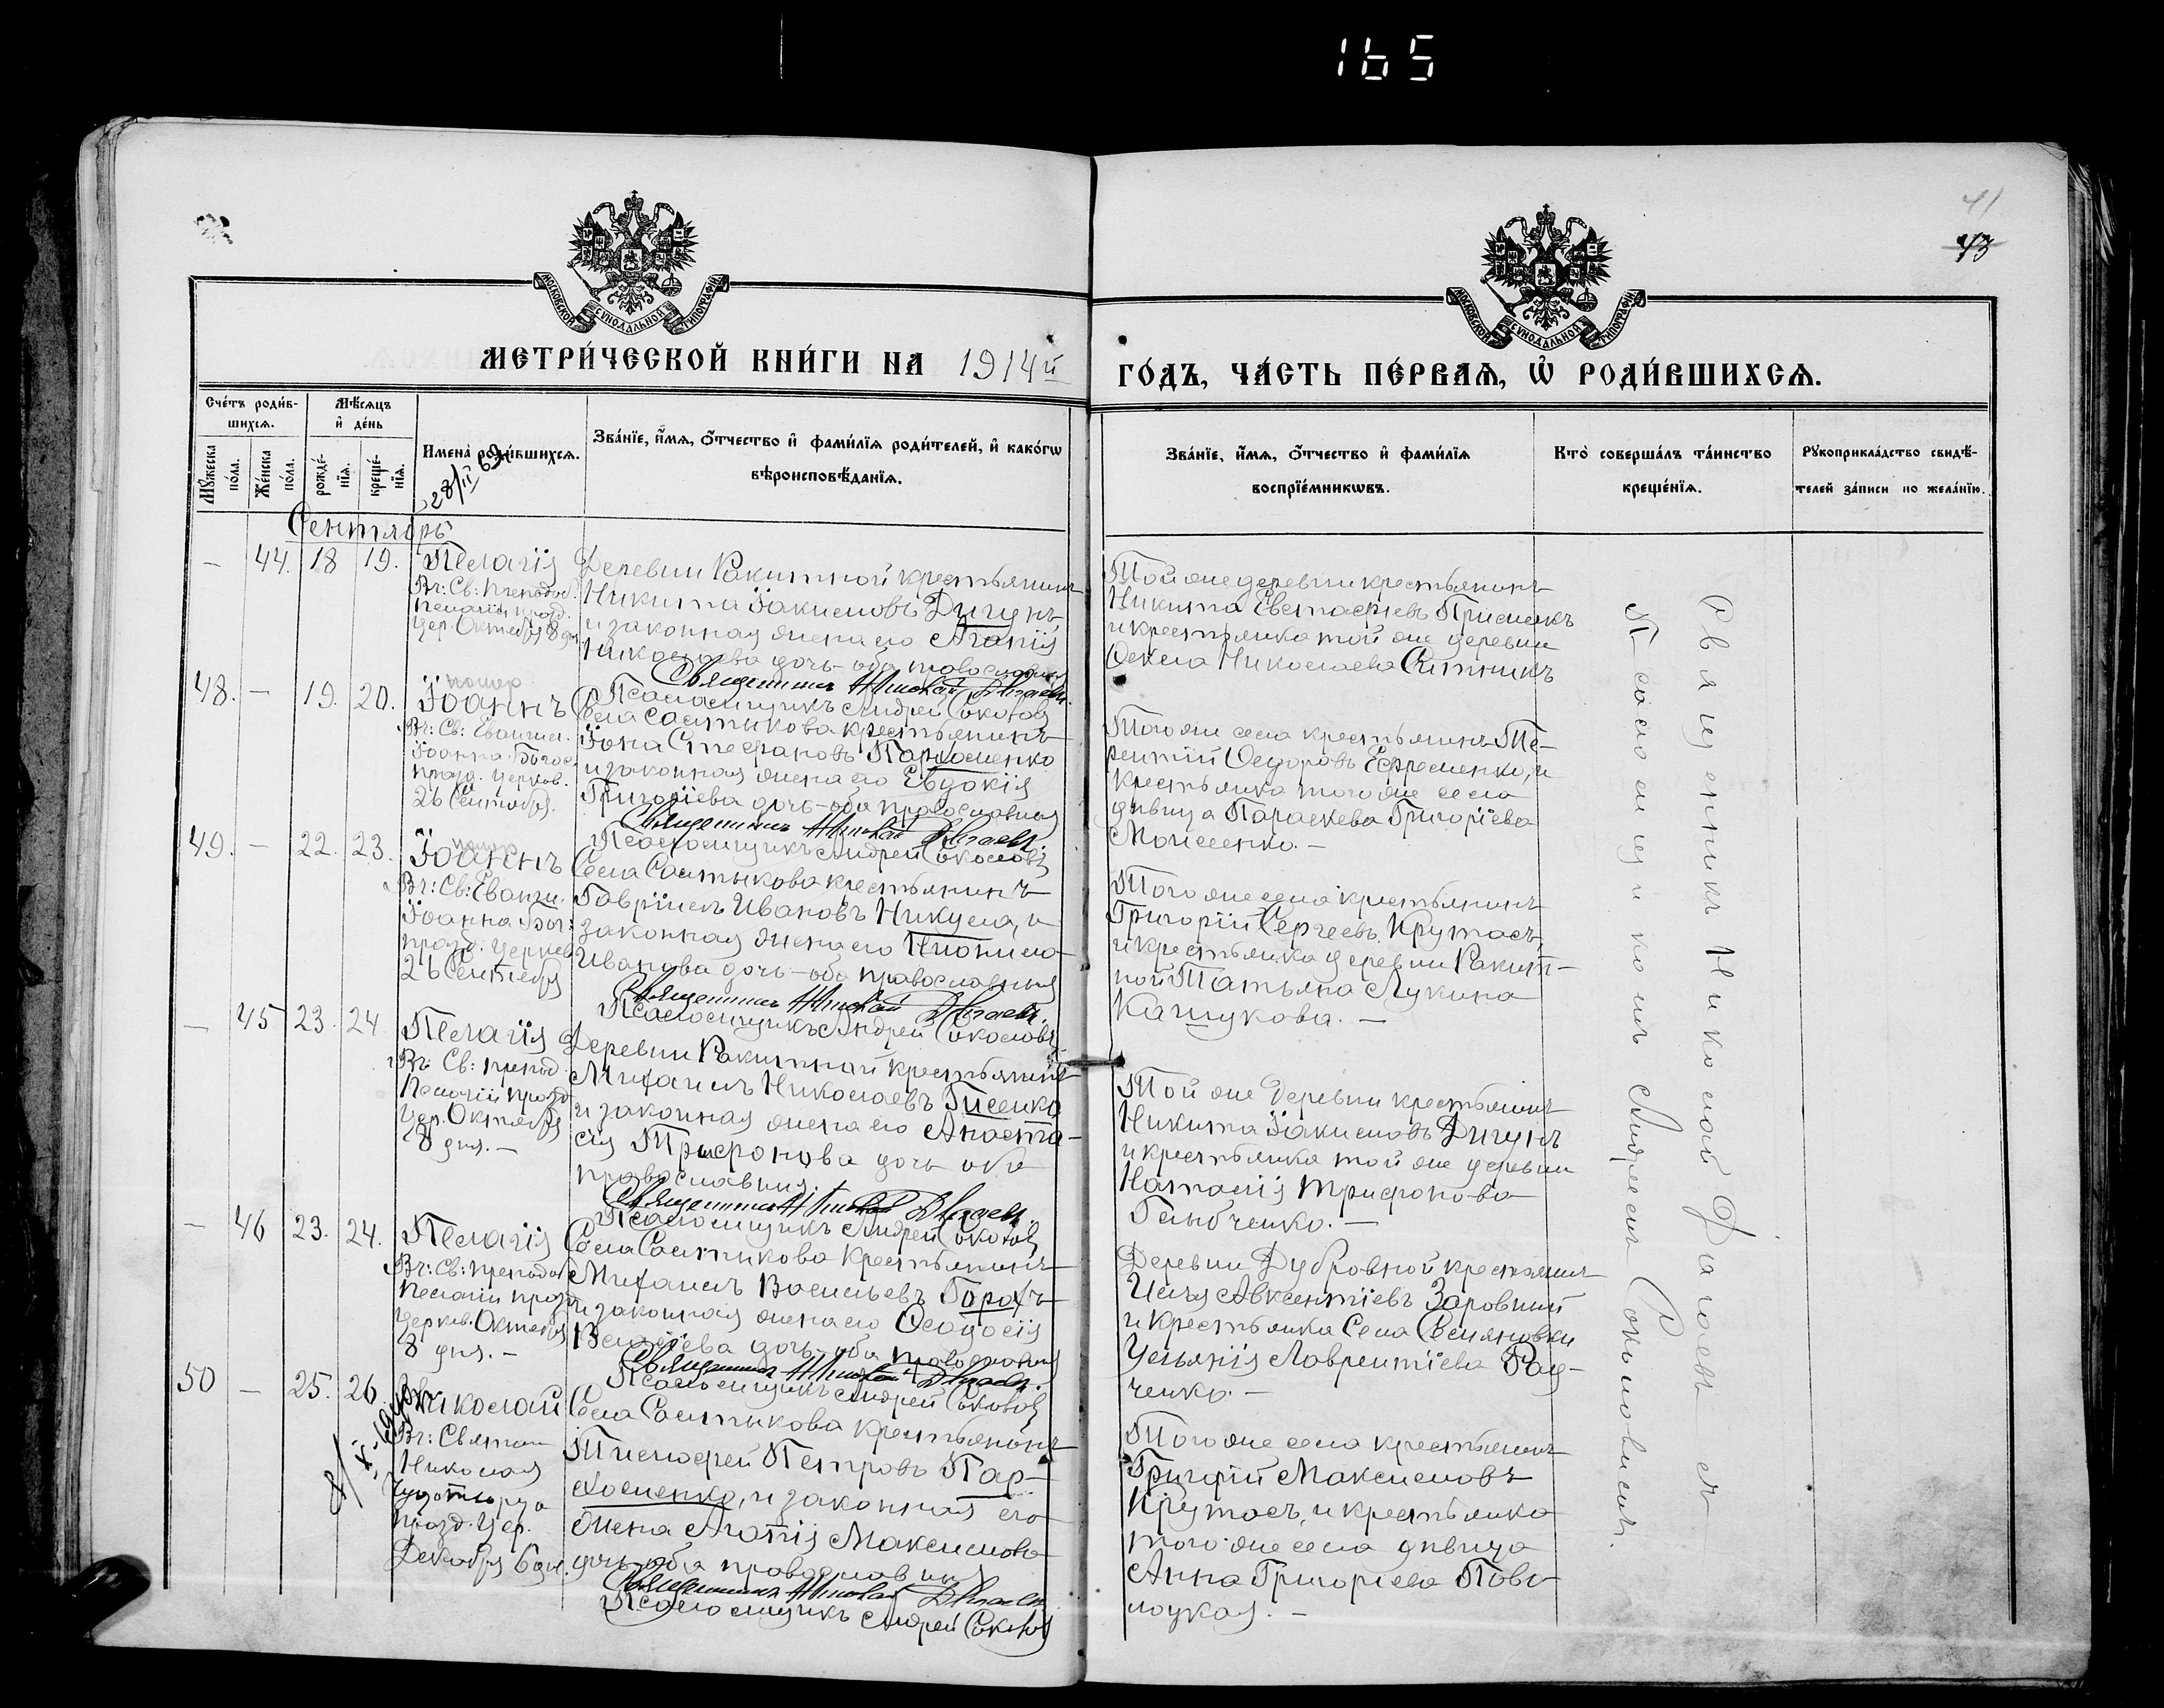 165
41
43
МОСКОВСКОЙ СУНОДАЛЬНОЙ ТИПОГРАФІИ
МОСКОВСКОЙ СУНОДАЛЬНОЙ ТИПОГРАФІИ
МЕТРИ́ЧЕСКОЙ КНИ́ГИ НА 1914й
ГО́ДЪ, ЧА́СТЬ ПЕ́РВАѦ, Ѡ РОДИ́ВШИХСѦ.
Сче́тъ роди́в-
шихсѧ.
Мꙋ́жеска по́ла.
Же́нска по́ла.
Мѣ́сѧцъ
и҆ де́нь
рожде́-
нїѧ.
креще́-
нїѧ.
Имена̀ роди́вшихсѧ.
28/II 69
Зва́нїе, и҆́мѧ, о҆́тчество и҆ фами́лїѧ роди́телей, и҆ како́гѡ
вѣроисповѣ́данїѧ.
Зва́нїе, и҆́мѧ, о҆́тчество и҆ фами́лїѧ
воспрїе́мникѡвъ.
Кто̀ соверша́лъ та́инство
креще́нїѧ.
Рꙋкоприкла́дство свидѣ́-
телей за́писи по жела́нїю.
Сентябрь
— 44. 18 19. Пелагія
Въ: Св: Преподоб.
Пелагіи празд.
цер. Октября 8 дня
Деревни Ракитной крестьянинъ
Никита Іакимовъ Дигунъ
и законная жена его Агапія
Николаева дочь - оба православныя
Священникъ Николай
Псаломщикъ Андрей Соколовъ
Той же деревни крестьянинъ
Никита Евстафіевъ
и крестьянка той же деревни
Фекла Николаева Ситникъ
48. — 19. 20. Іоаннъ
помер
Въ: Св: Евангел.
Іоанна Богос.
празд. церков.
26 Сентября.
Села Салтыкова крестьянинъ
Іона Стефановъ Пархоменко
и законная жена его Евдокія
Григоріева дочь - оба православныя
Священникъ Николай
Псаломщикъ Андрей Соколовъ
Того же села крестьянинъ Те-
рентій Федоровъ Ефременко, и
крестьянка того же села
дѣвица Параскева Григоріева
Моисеенко. —
49. — 22. 23. Іоаннъ
помер
Въ: Св: Еванги.
Іоанна Бог:
празд. церков
26 Сентября
Села Салтыкова крестьянинъ
Гавріилъ Ивановъ Никула, и
законная жена его Неонила
Иванова дочь - оба православныя
Священникъ Николай
Псаломщикъ Андрей Соколовъ
Того же села крестьянинъ
Григорій Сергеевъ Крутасъ,
и крестьянка деревни Ракит-
ной Татьяна Лукина
Кашукова. —
— 45 23. 24 Пелагія
Въ: Св: препод.
Пелагіи празд
цер. Октября
8 дня. —
Деревни Ракитной крестьянинъ
Михаилъ Николаевъ Гисенко
и законная жена его Анаста-
сія Трифонова дочь оба
православныя.
Священникъ Николай
Псаломщикъ Андрей Соколовъ
Той же деревни крестьянинъ
Никита Іакимовъ Дигунъ
и крестьянка той же деревни
Наталія Трифонова
— 46 23. 24. Пелагія
Въ: Св: преподоб
Пелагіи празд
церков. Октября
8 дня. —
Села Салтыкова крестьянинъ
Михаилъ Васильевъ Горохъ
и законная жена его Феодосія
дочь - оба православныя
Священникъ Николай
Псаломщикъ Андрей Соколовъ
Деревни Дубровной крестьянинъ
Илья Авксентіевъ Заровный
и крестьянка Села Семяновки
Ульянія Лаврентіева Рад-
ченко. —
50 — 25. 26 Николай
Въ: Святит
Николая
Чудотворца
празд. цер.
Декабря 6 дня.
Села Салтыкова крестьянинъ
Тимофей Петровъ Пар-
хоменко, и законная его
жена Агапія Максимова
дочь - оба православныя
Священникъ Николай
Псаломщикъ Андрей Соколовъ
Того же села крестьянинъ
Григорій Максимовъ
Крутасъ, и крестьянка
того же села дѣвица
Анна Григоріева Пово-
лоцкая. —
Священникъ Николай
Псаломщикомъ Андреемъ Соколовымъ.